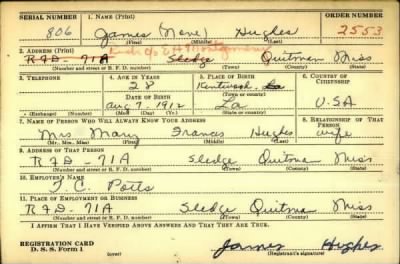 SERIAL NUMBER 1. NAME (Print) ORDER NUMBER
806 James (None) Hughes 2553
(First) (Middle) (Last)
2. ADDRESS (Print)
RFD - 71A Sledge Quitman Miss
(Number and street or R. F. D. number) (Town) (County) (State)
3. TELEPHONE 4. AGE IN YEARS 5. PLACE OF BIRTH 6. COUNTRY OF CITIZENSHIP
28 Kentwood La
DATE OF BIRTH (Town or county)
Aug 7, 1912 La USA
(Exchange) (Number) (Mo.) (Day) (Yr.) (State or country)
7. NAME OF PERSON WHO WILL ALWAYS KNOW YOUR ADDRESS 8. RELATIONSHIP OF THAT PERSON
Mrs. Mary Frances Hughes wife
(Mr., Mrs., Miss) (First) (Middle) (Last)
9. ADDRESS OF THAT PERSON
RFD - 71A Sledge Quitman Miss
(Number and street or R. F. D. number) (Town) (County) (State)
10. EMPLOYER'S NAME
T. C. Potts
11. PLACE OF EMPLOYMENT OR BUSINESS
RFD - 71A Sledge Quitman Miss
(Number and street or R. F. D. number) (Town) (County) (State)
I AFFIRM THAT I HAVE VERIFIED ABOVE ANSWERS AND THAT THEY ARE TRUE.
REGISTRATION CARD
D. S. S. Form 1 James Hughes
(Registrant's signature)